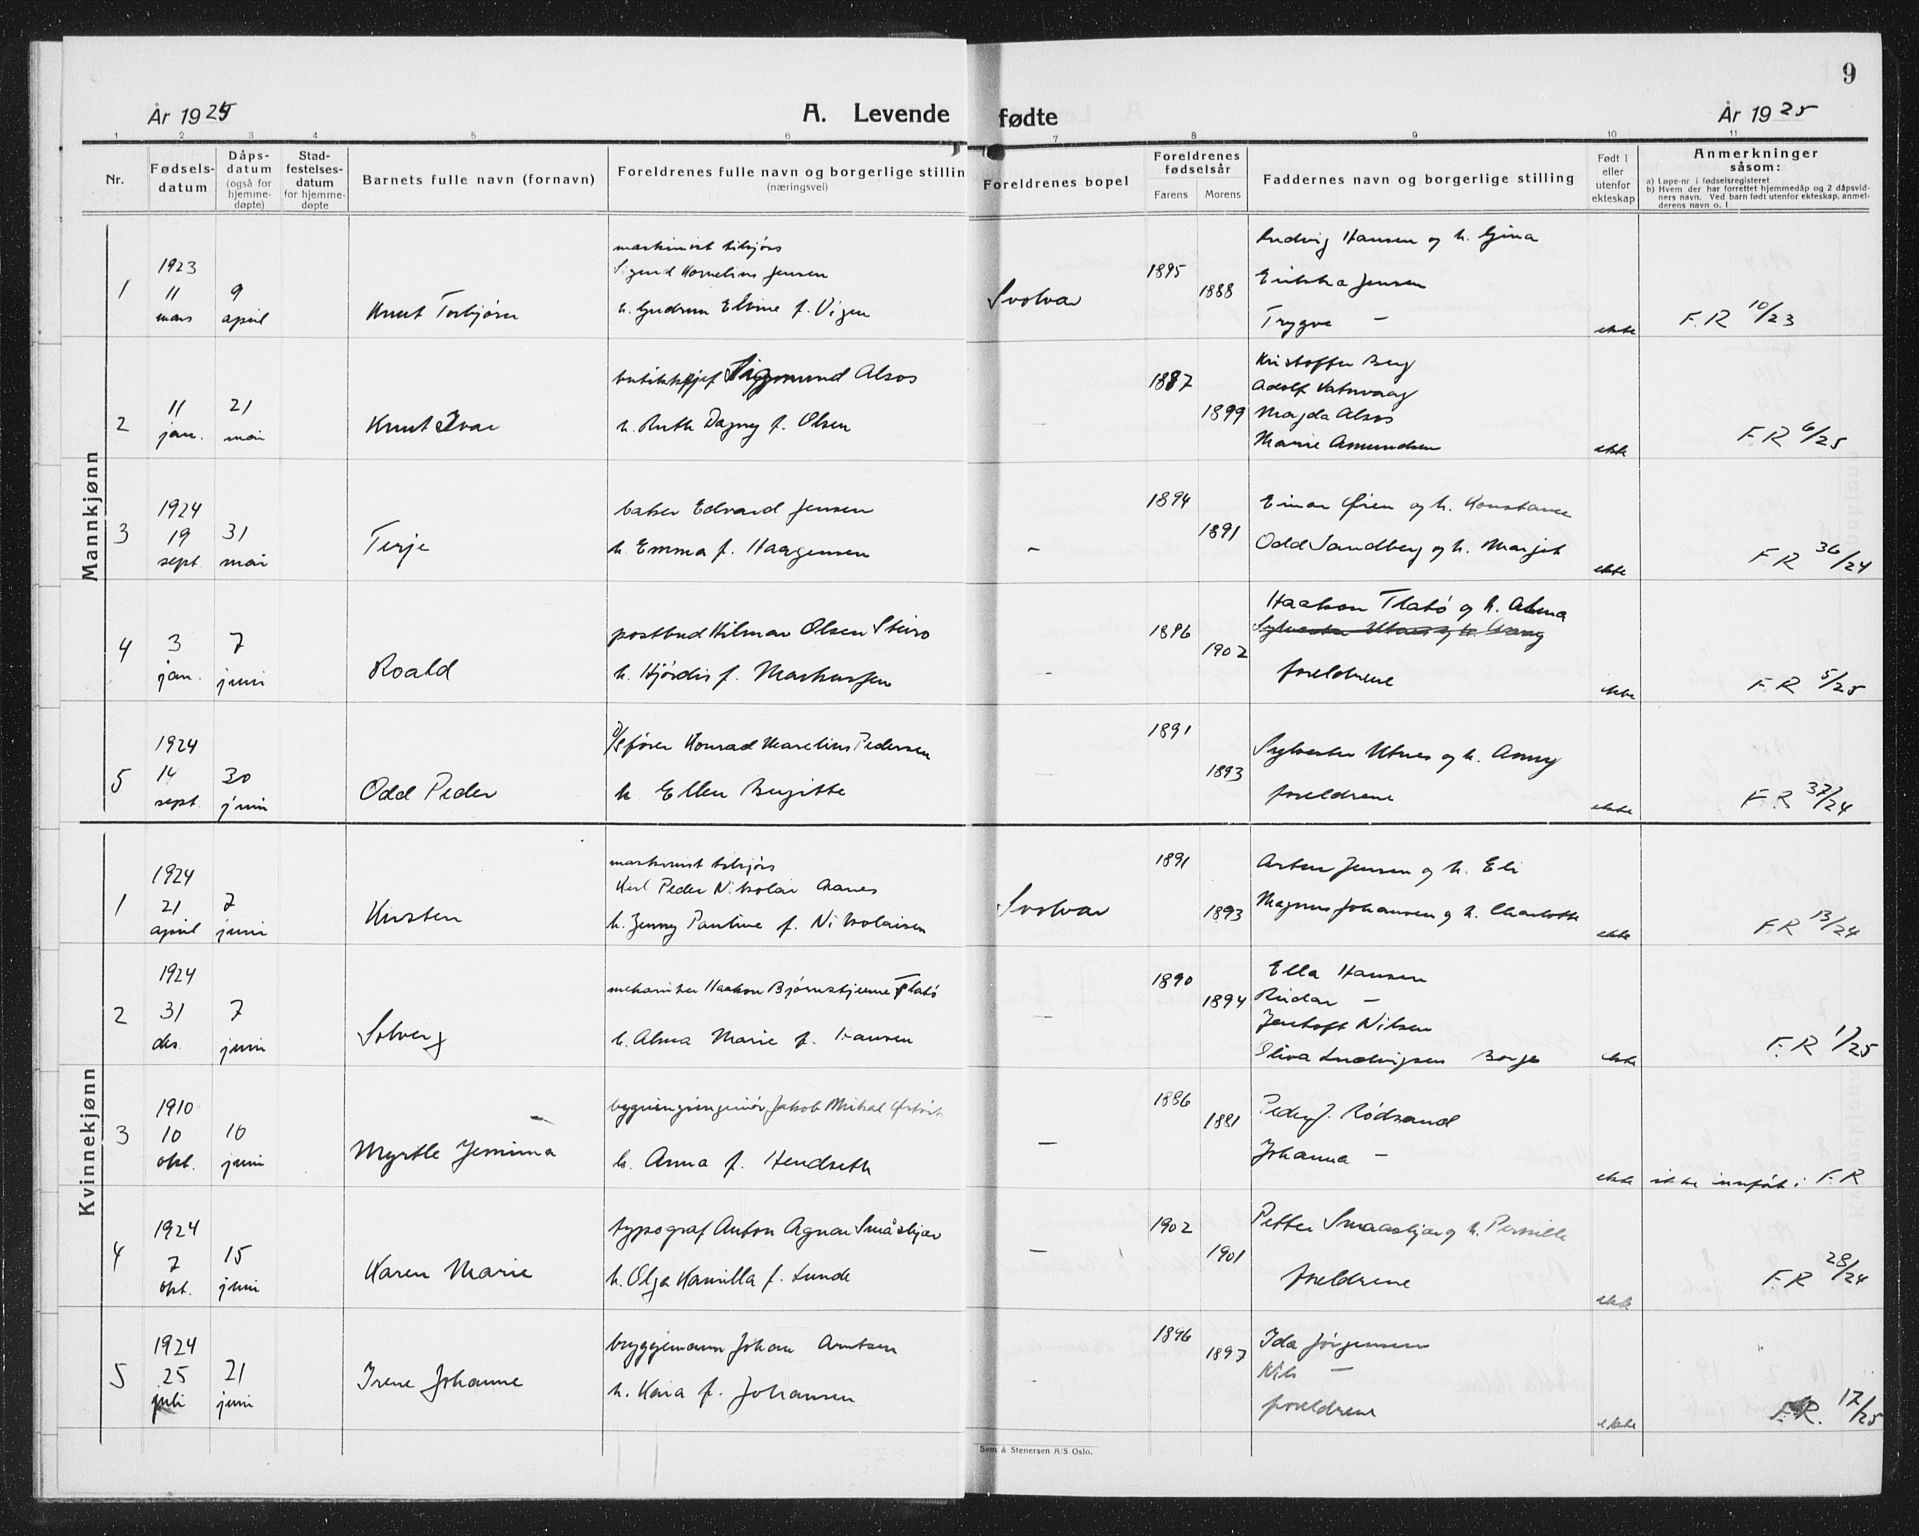 9
År 1925
A. Levende fødte
År 1925
1 2 3 4 5 6 7 8 9 10 11
Nr.
Fødsels-
datum
Dåps-
datum
(også for
hjemme-
døpte)
Stad-
festelses-
datum
for hjemme-
døpte
Barnets fulle navn (fornavn)
Foreldrenes fulle navn og borgerlige stilling
(næringsvei)
Foreldrenes bopel
Foreldrenes
fødselsår
Farens Morens
Faddernes navn og borgerlige stilling
Født i
eller
utenfor
ekteskap
Anmerkninger
såsom:
a) Løpe-nr i fødselsregisteret
b) Hvem der har forrettet hjemmedåp og 2 dåpsvid-
ners navn. Ved barn født utenfor ekteskap, anmel-
derens navn o. l
Mannkjønn
1
1923
11
mars
9
april
Knut Torbjørn
maskinist
Sigurd Kornelius Jensen
h. Gudrun Elvine f. Vigen
Svolvær
1895
1888
Ludvig Hansen og h. Gina
Jensen
Trygve —
ekte
F.R 10/23
2
11
jan.
21
mai
Knut Ivar
Sigmund Alsos
h. Ruth Dagny f. Olsen
-
1887
1899
Kristoffer Berg
Adolf
Magda Alsos
Marie Amundsen
ekte
F.R 6/25
3
1924
19
sept.
31
mai
Terje
baker Edvard Jensen
h. Emma f. Haagensen
-
1894
1891
Einar Øien og h. Konstance
Odd Sandberg og h. Margit
ekte
F.R 36/24
4
3
jan.
7
juni
Roald
postbud Hilmar Olsen
h. Hjørdis f. Markussen
-
1896
1902
Haakon Flatø og h. Alma
Sylvester Utnes og h. Anny
foreldrene
ekte
F.R 5/25
5
1924
14
sept.
30
juni
Odd Peder
Konrad Marelius Pedersen
h. Ellen Birgitte
-
1891
1893
Sylvester Utnes og h. Anny
foreldrene
ekte
F.R 37/24
Kvinnekjønn
1
1924
21
april
7
juni
Kirsten
maskinist
Karl Peder Nikolai Aanes
h. Jenny Pauline f. Nikolaisen
Svolvær
1891
1893
Jensen og h. Eli
Magnus Johansen og h. Charlotte
ekte
F.R 13/24
2
1924
31
des.
7
juni
Solveig
mekaniker Haakon Bjørnstjerne Flatø
h. Alma Marie f. Hansen
-
1890
1894
Ella Hansen
Reidar —
Jentoft Nilsen
Ludvigsen
ekte
F.R 1/25
3
1910
10
okt.
10
juni
Myrtle Jemima
bygningsingeniør Jakob Mikal
h. Anna f. Hendseth
-
1886
1881
Peder J. Rødsand
Johanna —
ekte
ikke innført i F.R
4
1924
7
okt.
15
juni
Karen Marie
typograf Anton Agnar Småskjær
h. Olga Kamilla f. Lunde
-
1902
1901
Petter Smaaskjær og h. Pernille
foreldrene
ekte
F.R 28/24
5
1924
25
juli
21
juni
Irene Johanne
bryggemann Johan Arntsen
h. Kaia f. Johansen
1896
1897
Ida Jørgensen
Nils —
foreldrene
ekte
F.R. 17/25
Sem & Stenersen A/S Oslo.